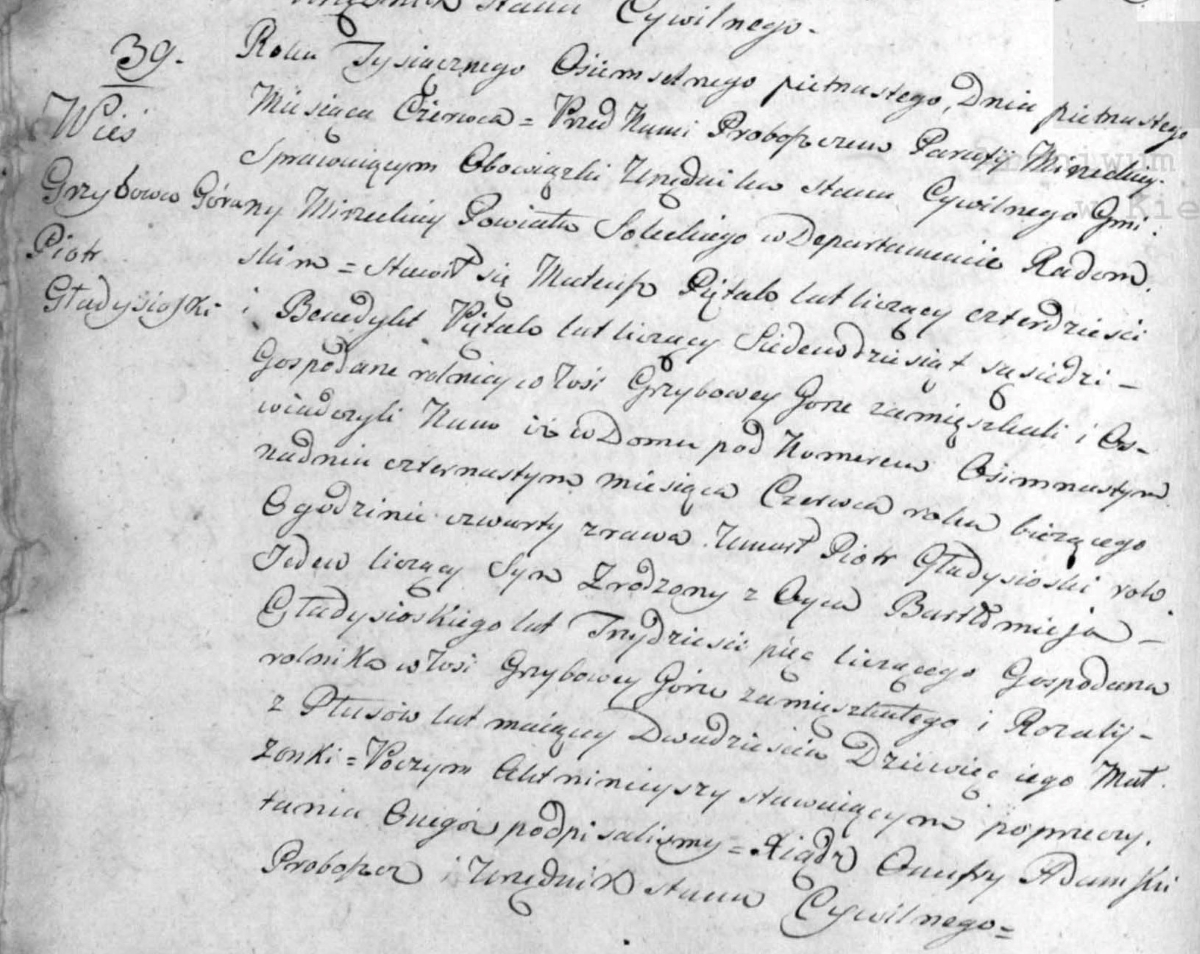 Urzędnik Stanu Cywilnego.
39.
Wieś
Grzybowa Góra
Piotr
Gładysioski
Roku Tysiącznego Osiemsetnego pietnastego, Dnia pietnastego
Miesiąca Czerwca = Przed Nami Proboszczem Parafij Mirzeckiy.
Sprawuiącym Obowiązki Urzędnika Stanu Cywilnego Gmi.
ny Mirzeckiy Powiatu Soleckiego w Departamencie Radom.
skim = Stawił się Mateusz Piętak lat liczący czterdzieści
i Benedykt Piętak lat liczący Siedemdziesiąt sąsiedzi –
Gospodarze rolnicy w Wsi Grzybowey Gorze zamięszkali i Oś-
wiadczyli Nam iż w Domu pod Numerem Osimnastym
na dniu czternastym miesiąca Czerwca roku bieżącego
O godzinie czwarty zrana Umarł Piotr Gładysioski rok.
Jeden liczący Syn Zrodzony z Oyca Bartłomieja –
Gładysioskiego lat Trzydzieści pięć liczącego Gospodarza
rolnika w Wsi Grzybowey Górze zamieszkałego i Rozalij –
z Ptusów lat maiący Dwadzieścia Dziewięć iego Mał.
żonki = Poczym Akt ninieyszy stawaiącym poprzeczy.
taniu Onegoż podpisalismy = Xiądz Onufry Adamski
Proboszcz i Urzędnik Stanu Cywilnego =